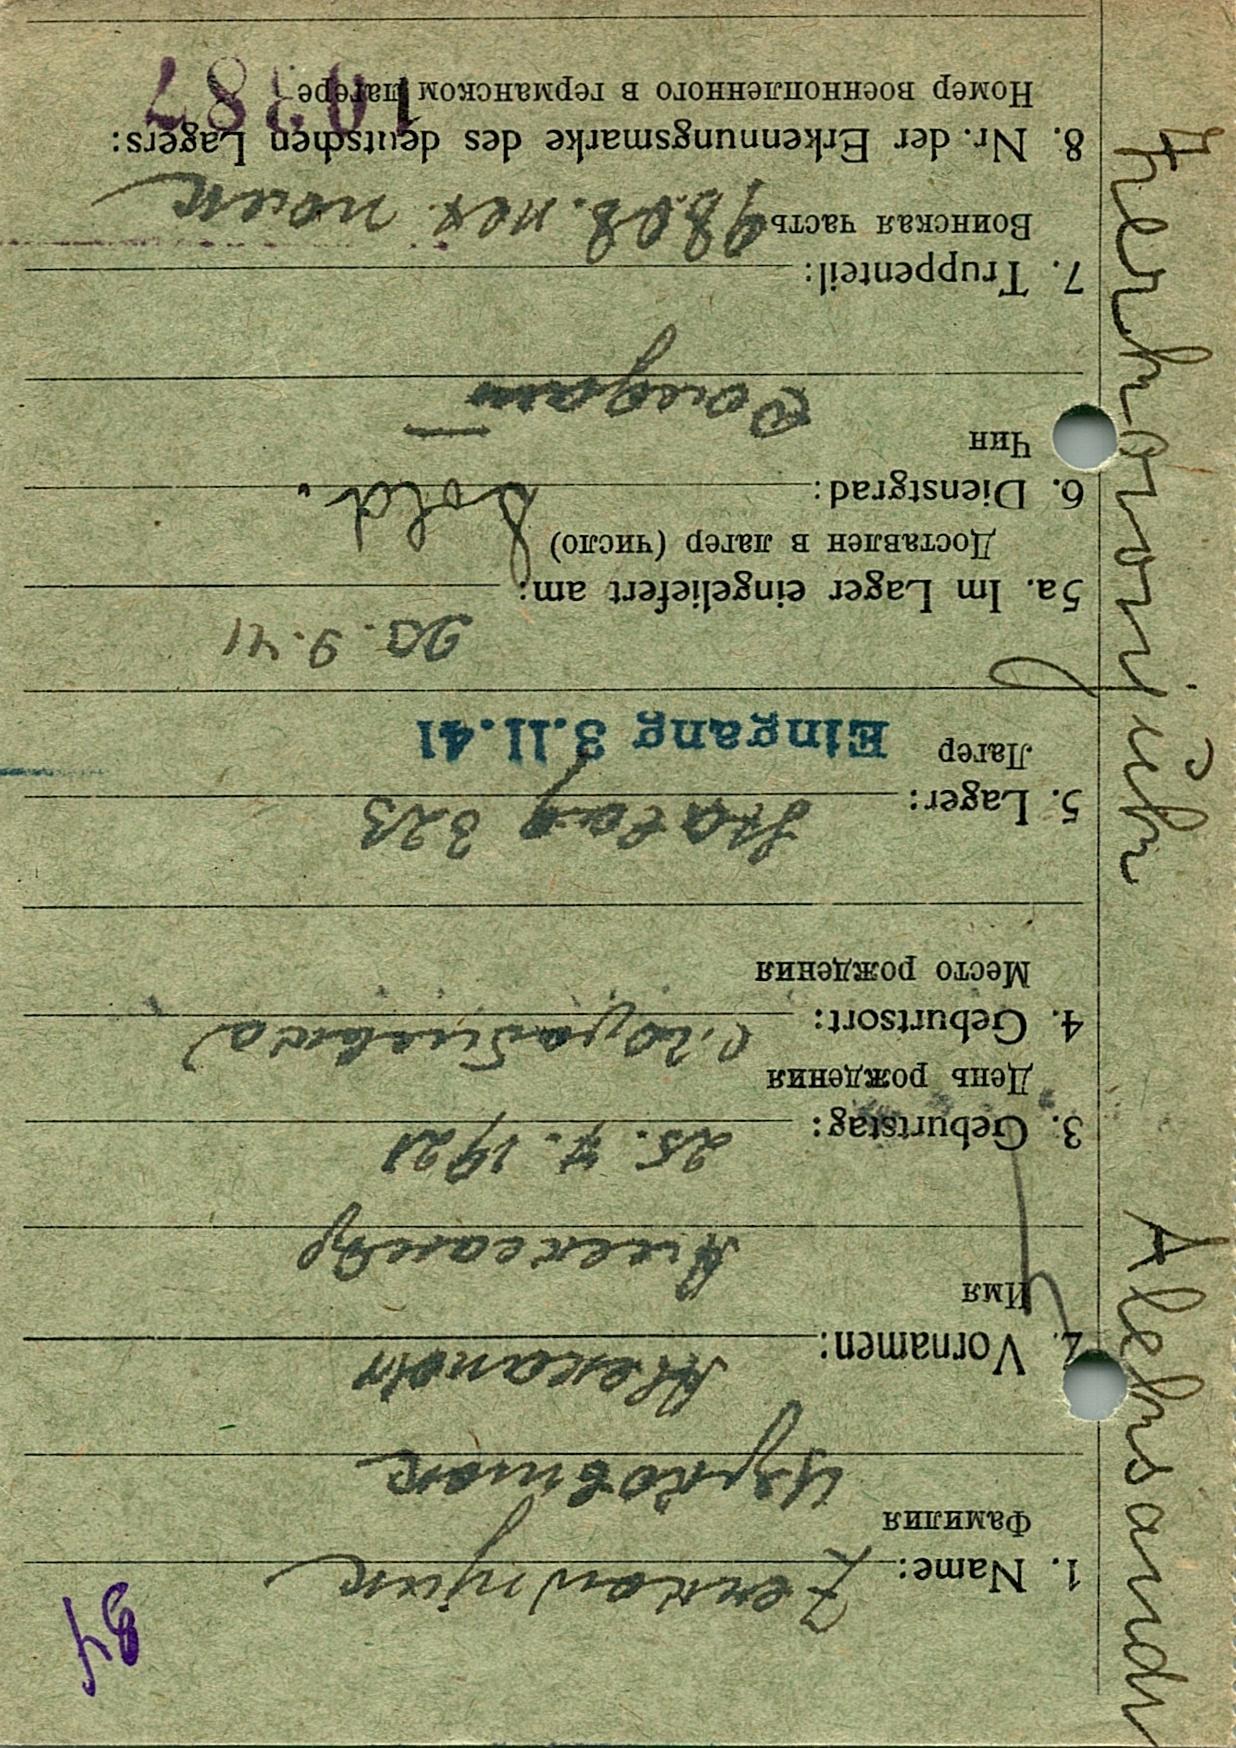 84
1. Name: Zerkownjuk
Фамилия
Церковнюк
2. Vornamen: Alexandr
Имя
Александр
3. Geburtstag: 25. 7. 1921
День рождения
4. Geburtsort:
Место рождения
5. Lager: Stalag 323
Лагер
Eingang 3.11.41
20. 9. 41
5a. Im Lager eingeliefert am:
Доставлен в лагер (число)
6. Dienstgrad: Sold.
Чин
Солдат
7. Truppenteil:
Воинская часть полк
8. Nr. der Erkennungsmarke des deutschen Lagers:
Номер военнопленного в германском лагере
10387
Aleksandr